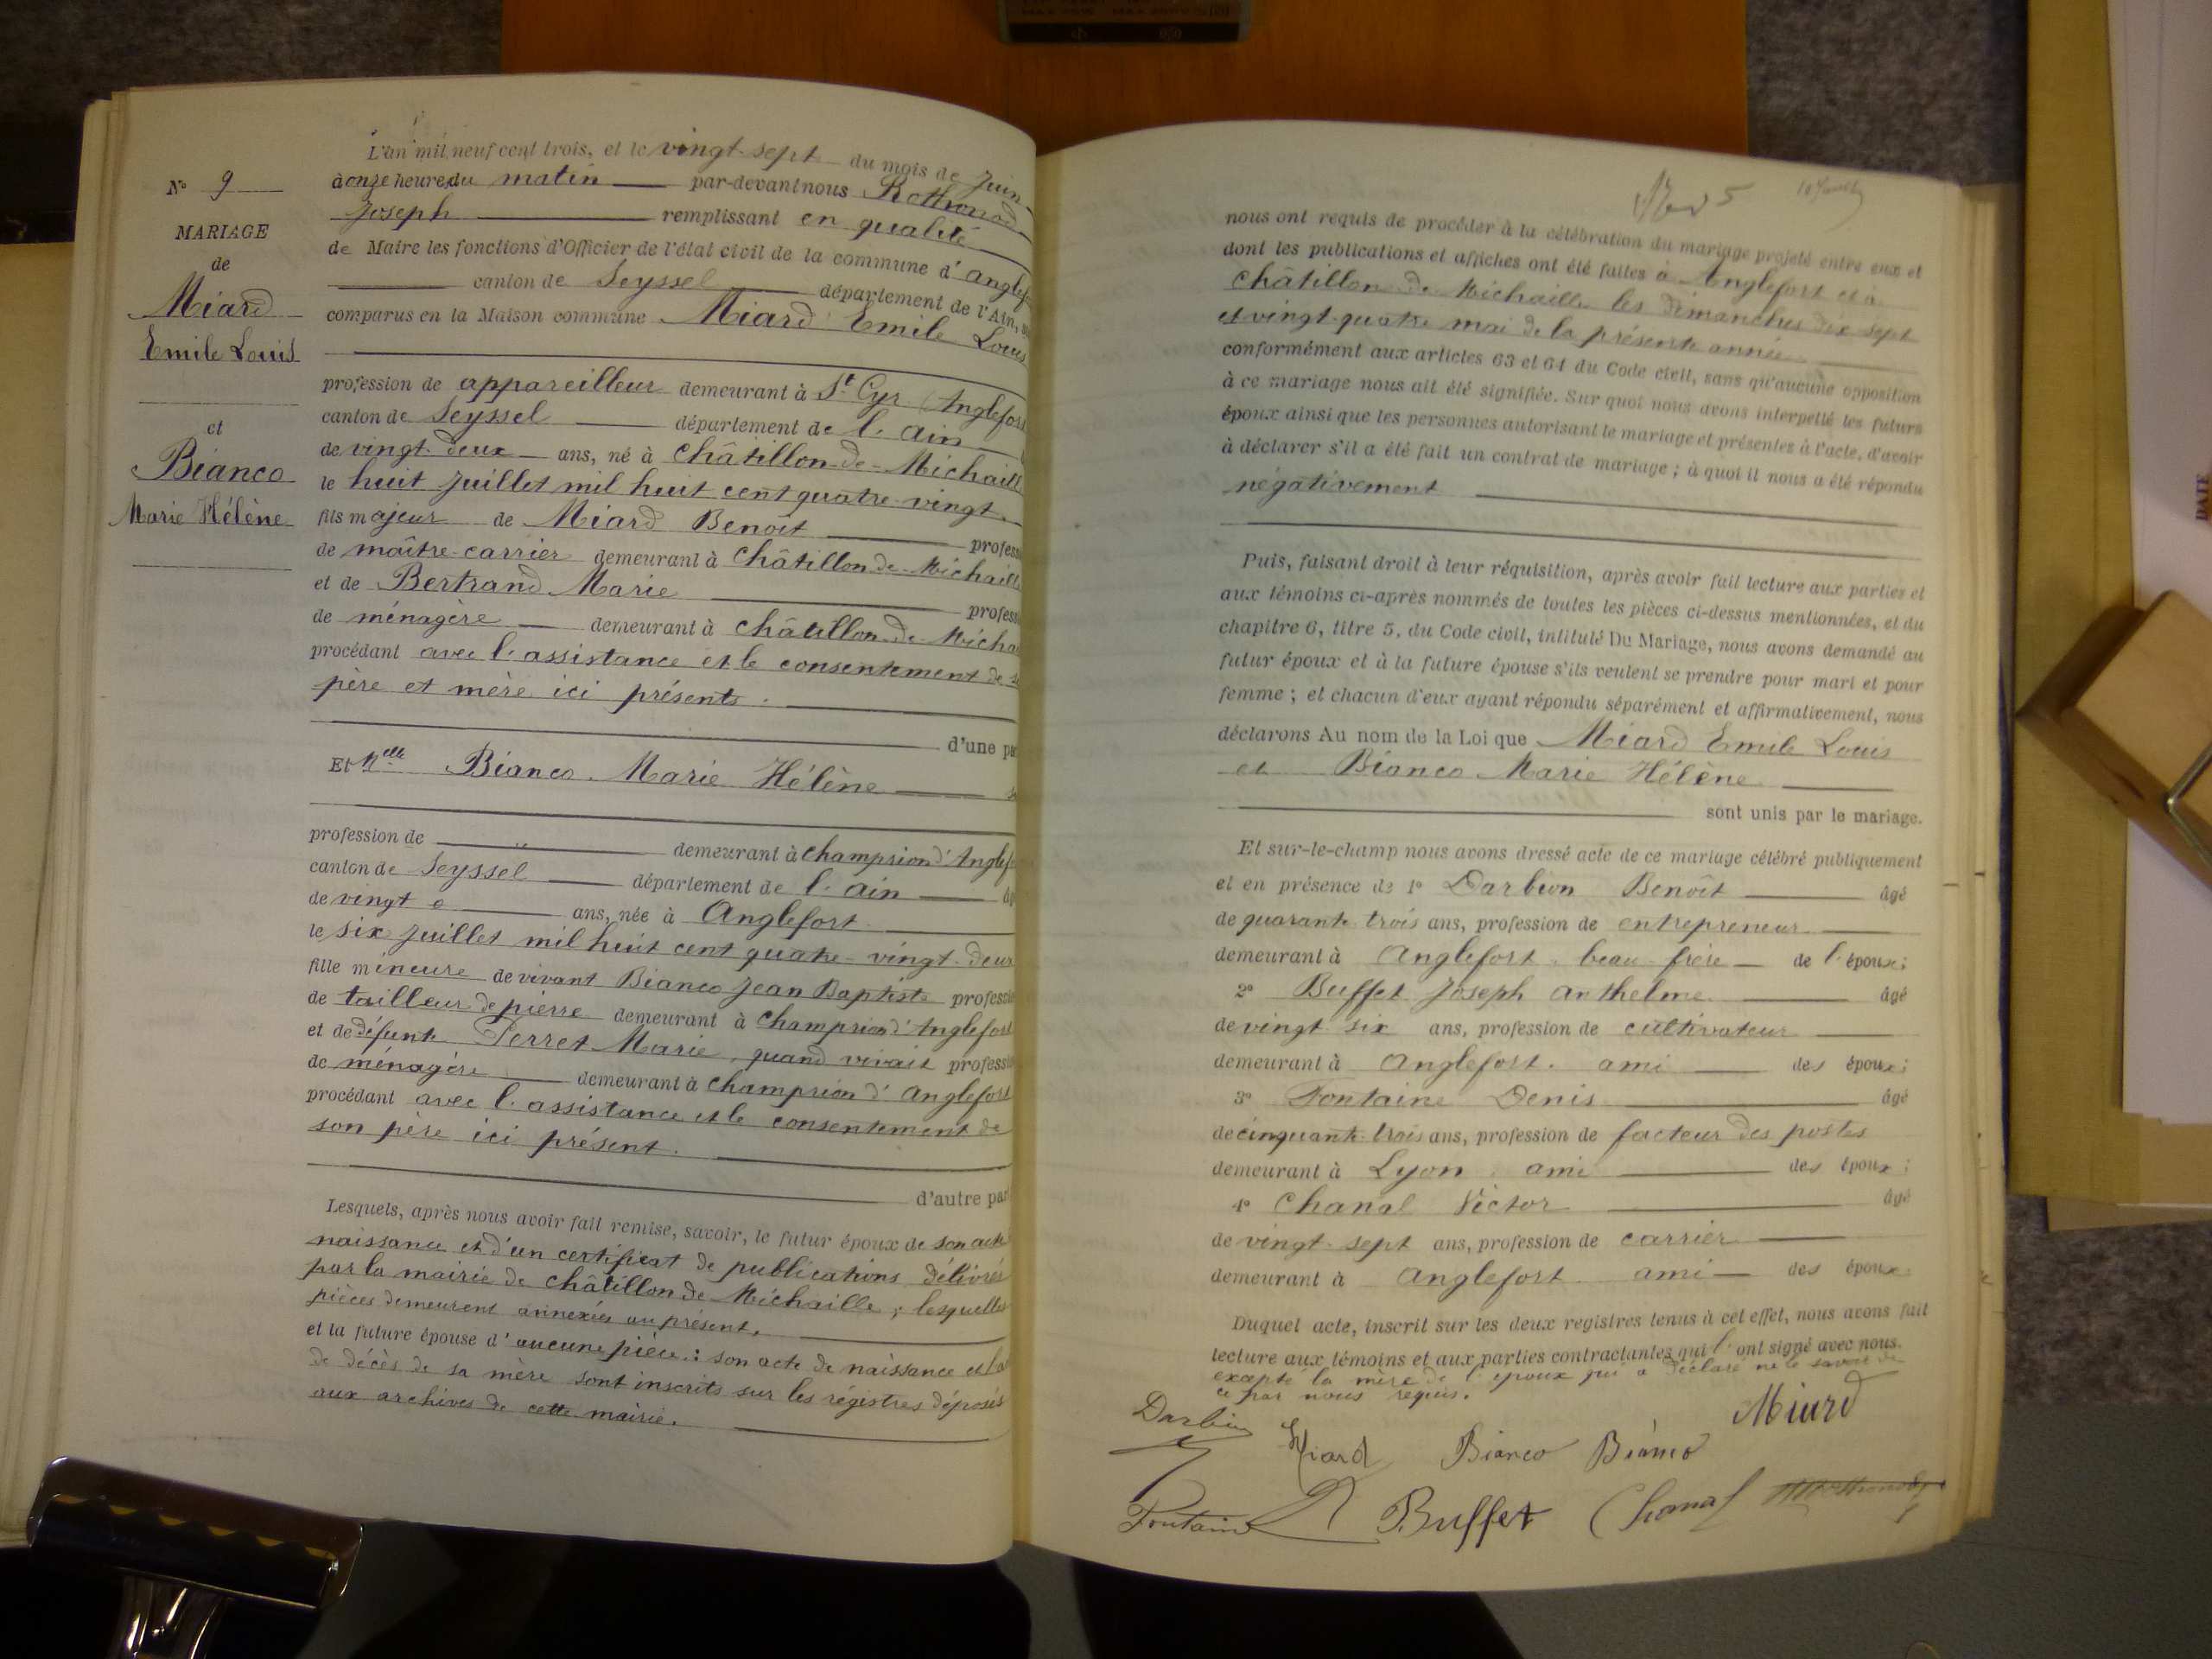 N° 9
MARIAGE
de
Miard
Emile Louis
et
Bianco
Marie Hélène
L'an mil neuf cent trois, et le vingt-sept du mois de Juin
à onze heures du matin par-devant nous
Joseph remplissant en qualité
de Maire les fonctions d'Officier de l'état civil de la commune d'Anglef
canton de Seyssel département de l'Ain,
comparus en la Maison commune Miard Emile Louis
profession de appareilleur demeurant à St Cyr (Anglefort
canton de Seyssel département de l'Ain
de vingt-deux ans, né à Châtillon-de-Michaill
le huit Juillet mil huit cent quatre-vingt.
fils majeur de Miard Benoît profess
de maître-carrier demeurant à Châtillon-de-Michaill
et de Bertrand Marie profess
de ménagère demeurant à Châtillon-de-Micha
procédant avec l'assistance et le consentement de s
père et mère ici présents.
d'une pa
Et Melle Bianco Marie Hélène
profession de " demeurant à Champriond'Anglef
canton de Seyssel département de l'Ain
de vingt e ans, née à Anglefort
le six Juillet mil huit cent quatre-vingt-deux
fille mineure de vivant Bianco Jean Baptiste professio
de tailleur de pierre demeurant à Champriond'Anglefort
et de défunte Perret Marie, quand vivait professi
de ménagère demeurant à Champriond'Anglefort
procédant avec l'assistance et le consentement de
son père ici présent.
d'autre par
Lesquels, après nous avoir fait remise, savoir, le futur époux de son acte
naissance et d'un certificat de publications délivrés
par la mairie de Châtillon de Michaille; lesquelles
pièces demeurent annexées au présent.
et la future épouse d'aucune pièce: son acte de naissance et
de décès de sa mère sont inscrits sur les régistres déposés
aux archives de cette mairie.
nous ont requis de procéder à la célébration du mariage projeté entre eux et
dont les publications et affiches ont été faites à Anglefort et à
Châtillon de Michaille les dimanches dix sept
et vingt-quatre mai de la présente année
conformément aux articles 63 et 64 du Code civil, sans qu'aucune opposition
à ce mariage nous ait été signifiée. Sur quoi nous avons interpellé les futurs
époux ainsi que les personnes autorisant le mariage et présentes à l'acte, d'avoir
à déclarer s'il a été fait un contrat de mariage; à quoi il nous a été répondu
négativement
Puis, faisant droit à leur réquisition, après avoir fait lecture aux parties et
aux témoins ci-après nommés de toutes les pièces ci-dessus mentionnées, et du
chapitre 6, titre 5, du Code civil, intitulé Du Mariage, nous avons demandé au
futur époux et à la future épouse s'ils veulent se prendre pour mari et pour
femme; et chacun d'eux ayant répondu séparément et affirmativement, nous
déclarons Au nom de la Loi que Miard Emile Louis
et Bianco Marie Hélène
sont unis par le mariage.
Et sur-le-champ nous avons dressé acte de ce mariage célébré publiquement
et en présence de 1° Darbion Benoît âgé
de quarante trois ans, profession de entrepreneur
demeurant à Anglefort beau-frère de l'époux;
2° Buffet Joseph Anthelme âgé
de vingt six ans, profession de cultivateur
demeurant à Anglefort. ami des époux;
3° Fontaine Denis âgé
de cinquante-trois ans, profession de facteur des postes
demeurant à Lyon. ami des époux;
4° Chanal Victor âgé
de vingt-sept ans, profession de carrier
demeurant à Anglefort. ami des époux
Duquel acte, inscrit sur les deux registres tenus à cet effet, nous avons fait
lecture aux témoins et aux parties contractantes qui l'ont signé avec nous.
excepté la mère de l'époux qui a déclaré ne le savoir de
ce par nous requis.
Darbion Miard Bianco Bianco Miard
Fontaine Buffet Chanal
DATE